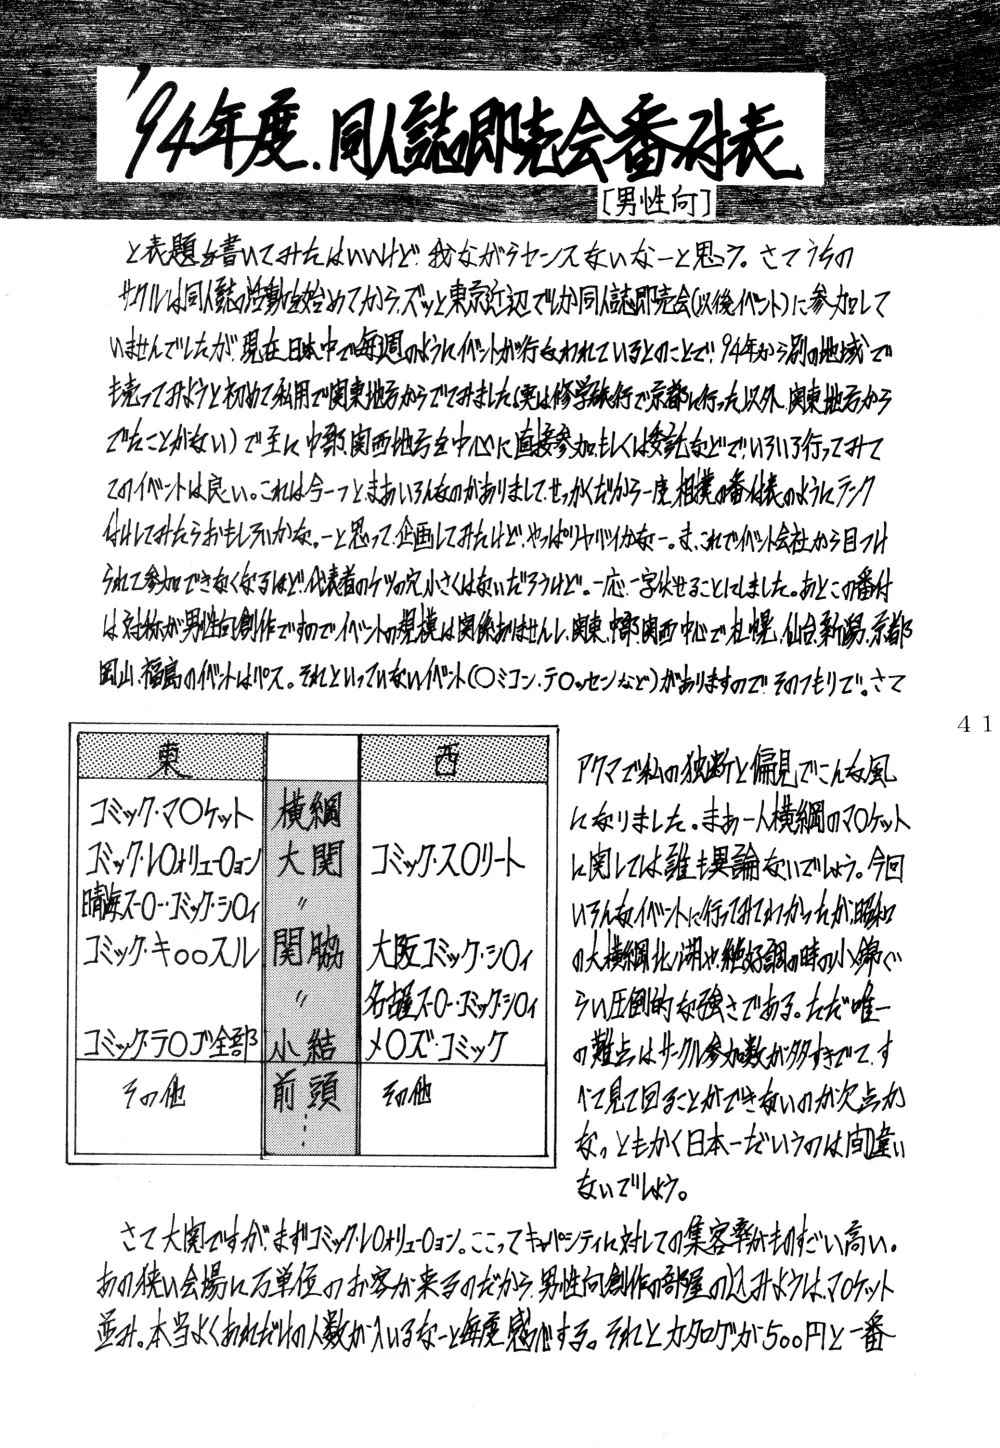 '94年度.同人誌即売会番付表
[男性向]
と表題を書いてみたはいいけど、我ながらセンスないなーと思う。さてうちの
サークルは同人誌の活動を始めてからズッと東京近辺でしか同人誌即売会(以後イベント)に参加して
いませんでしたが、現在日本中で毎週のようにイベントが行なわれているとのことで、94年から別の地域で
も売ってみようと初めて私用で関東地方からでてみました(実は修学旅行で京都に行った以外、関東地方から
でたことがない)で主に中部、関西地方を中心に直接参加もしくは委託などでいろいろ行ってみて
このイベントは良い。これは今一つとまあいろんなのがありまして、せっかくだから一度、相撲の番付表のようにランク
付けしてみたらおもしろいかな。ーと思って、企画してみたけど、やっぱりヤバイかなー。ま、これでイベント会社から目つけ
られて参加できなくなるほど、代表者のケツの穴小さくはないだろうけど。一応一字伏せることにしました。あとこの番付
は対称が男性向創作ですのでイベントの規模は関係ありませんし、関東、中部、関西中心で札幌、仙台、新潟、京都
岡山、福島のイベントはパス。それといっていないイベント(〇ミコン、テ〇ッセンなど)がありますので、そのつもりで。さて
41
東 西
コミック・マ〇ケット 横綱
コミック・レ〇ォリュー〇ョン 大関 コミック・ス〇リート
晴海スー〇ー・コミック・シ〇ィ 〃
コミック・キ〇〇スル 関脇 大阪コミック・シ〇ィ
〃 名古屋スー〇ー・コミック・シ〇ィ
コミック・テ〇ゴ全部 小結 メ〇ズ・コミック
その他 前頭 その他
アクマで私の独断と偏見でこんな風
になりました。まあ一人横綱のマ〇ケット
に関しては誰も異論ないでしょう。今回
いろんなイベントに行ってみてわかったが、昭和
の大横綱北ノ湖や、絶好調の時の小錦ぐ
らい圧倒的な強さである。ただ唯一
の難点はサークル参加数が多すぎて、す
べて見て回ることができないのが欠点か
な。ともかく日本一だいうのは間違い
ないでしょう。
さて大関ですが、まずコミック・レ〇ォリュー〇ョン。ここってキャパシティに対しての集客率がものすごい高い。
あの狭い会場に万単位のお客が来るのだから、男性向創作の部屋の込みようは、マ〇ケット
並み。本当よくあれだけの人数が入いるなーと毎度感心する。それとカタログが500円と一番